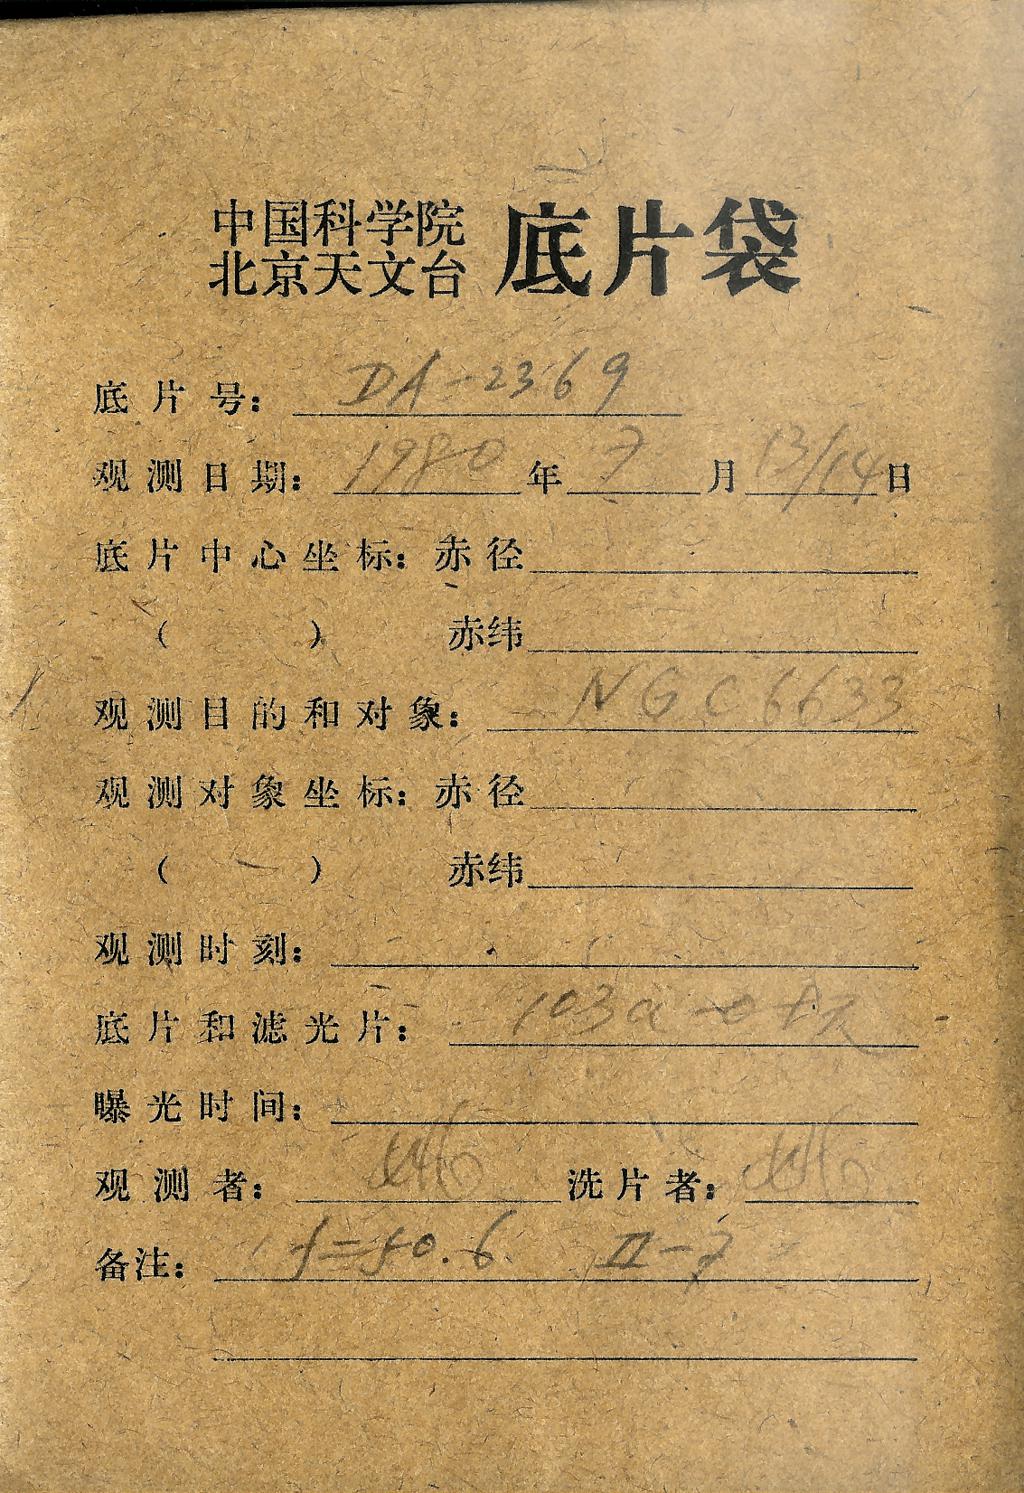 中国科学院
北京天文台 底片袋
底片号: DA-2369
观测日期: 1980年7月13/14日
底片中心坐标: 赤径
( ) 赤纬
观测目的和对象: NGC 6633
观测对象坐标: 赤径
( ) 赤纬
观测时刻:
底片和滤光片: 103a-o
曝光时间:
观测者: 洗片者:
备注: f=50.6 II-7